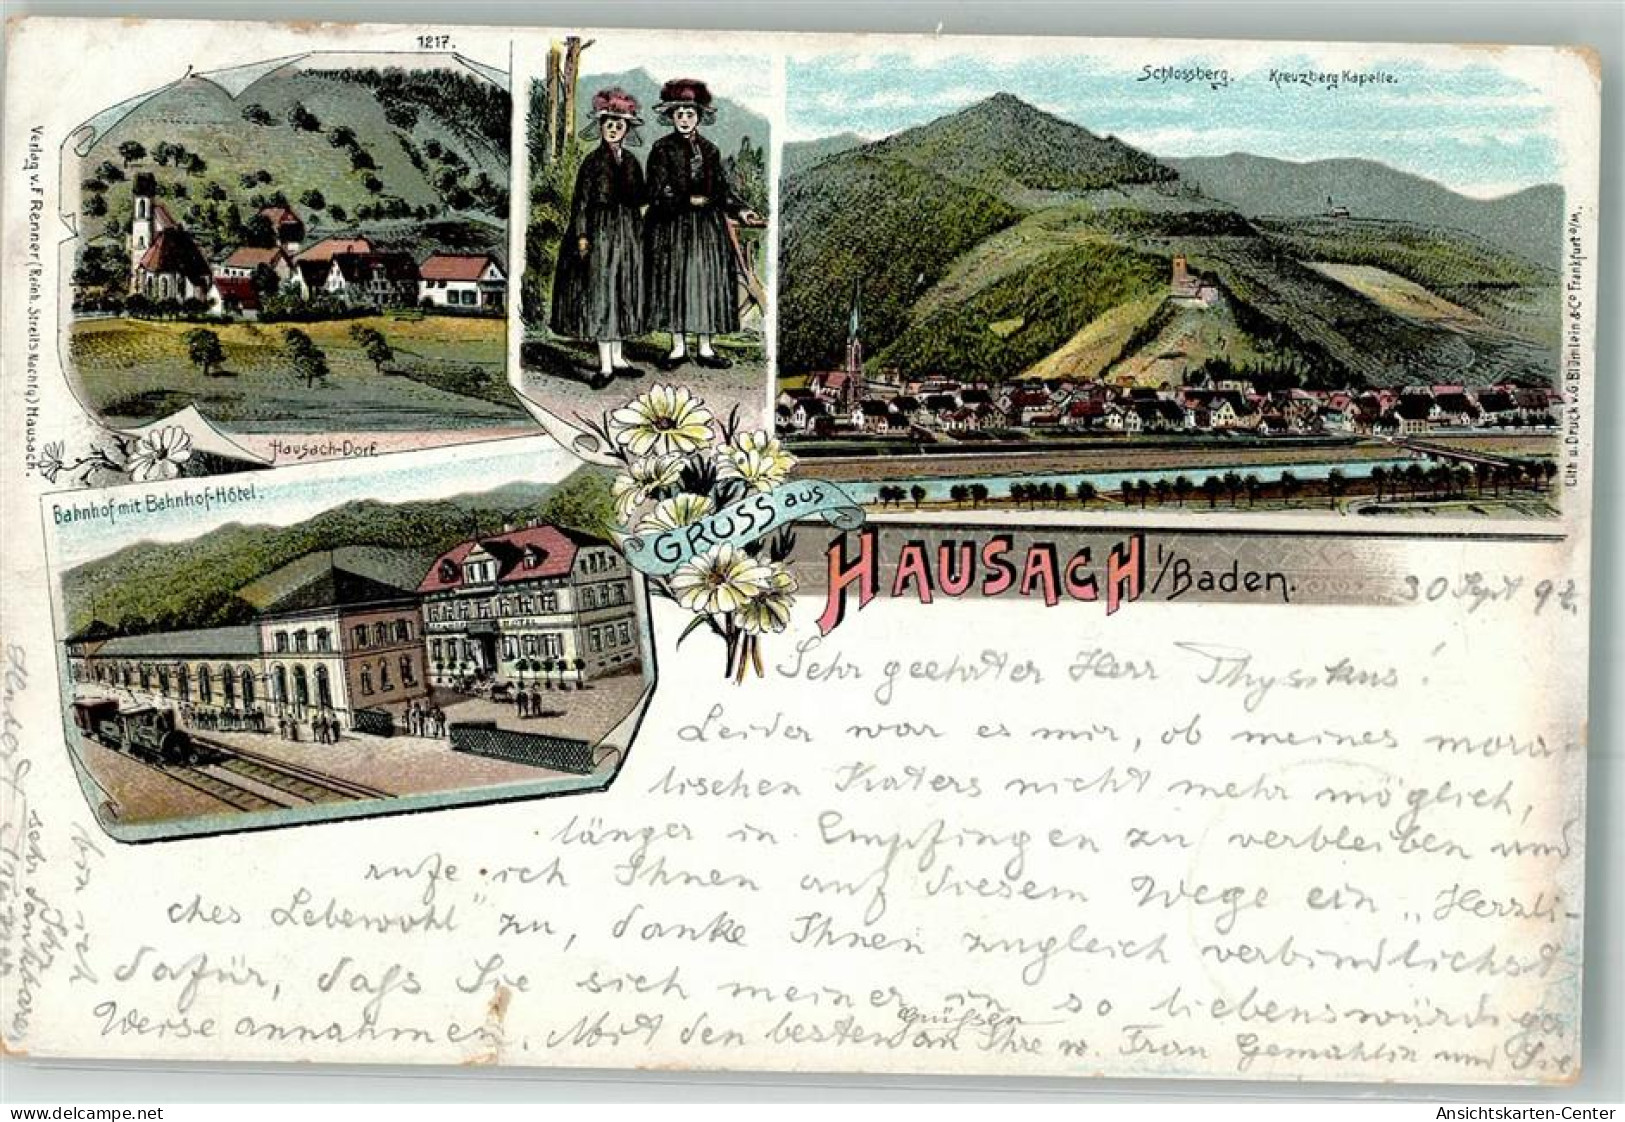 1217.
Schlossberg. Kreuzberg Kapelle.
Verlag v. F. Renner (Reinh. Streits Nachfg) Hausach.
Hausach-Dorf.
Bahnhof mit Bahnhof-Hôtel.
HOTEL
GRUSS aus
HAUSACH i/Baden.
Lith. u. Druck v. G. Blümlein & Co Frankfurt a/M.
30 Sept 92.
Sehr geehrter Herr !
Leider war es mir, ob meines mora-
lischen Katers nicht mehr möglich,
länger in Empfingen zu verbleiben und
rufe ich Ihnen auf diesem Wege ein „Herzli-
ches Lebewohl" zu, danke Ihnen zugleich verbindlichst
dafür, daß Sie sich meiner in so liebenswürdiger
Weise annahmen. Mit den besten Grüßen an Ihre w. Frau Gemahlin und Sie
bin ich
Ihr
sehr dankbarer
Ansichtskarten-Center